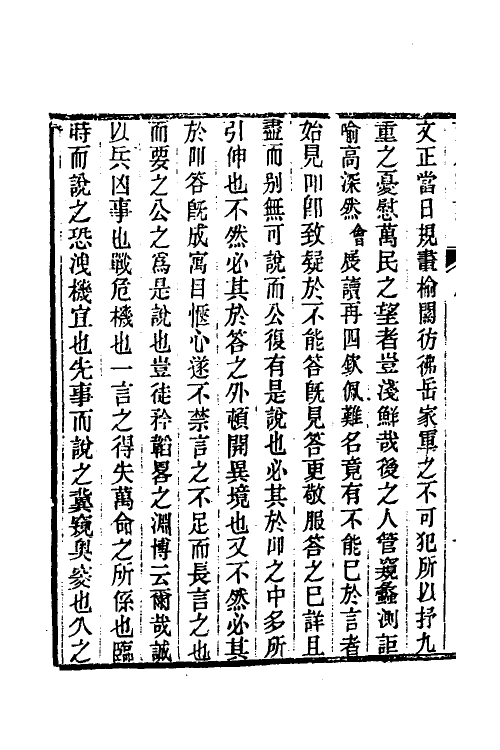 文正當日規畫榆關彷彿岳家軍之不可犯所以抒九
重之憂慰萬民之望者豈淺鮮哉後之人管窺蠡測詎
喻高深然會展讀再四欽佩難名竟有不能已於言者
始見叩卽致疑於不能答旣見答更敬服答之已詳且
盡而别無可說而公復有是說也必其於叩之中多所
引伸也不然必其於答之外頓開異境也又不然必其
於叩答旣成寓目愜心遂不禁言之不足而長言之也
而要之公之爲是說也豈徒矜韜畧之淵博云爾哉誠
以兵凶事也戰危機也一言之得失萬命之所係也臨
時而說之恐洩機宜也先事而說之冀窺奥窔也久之